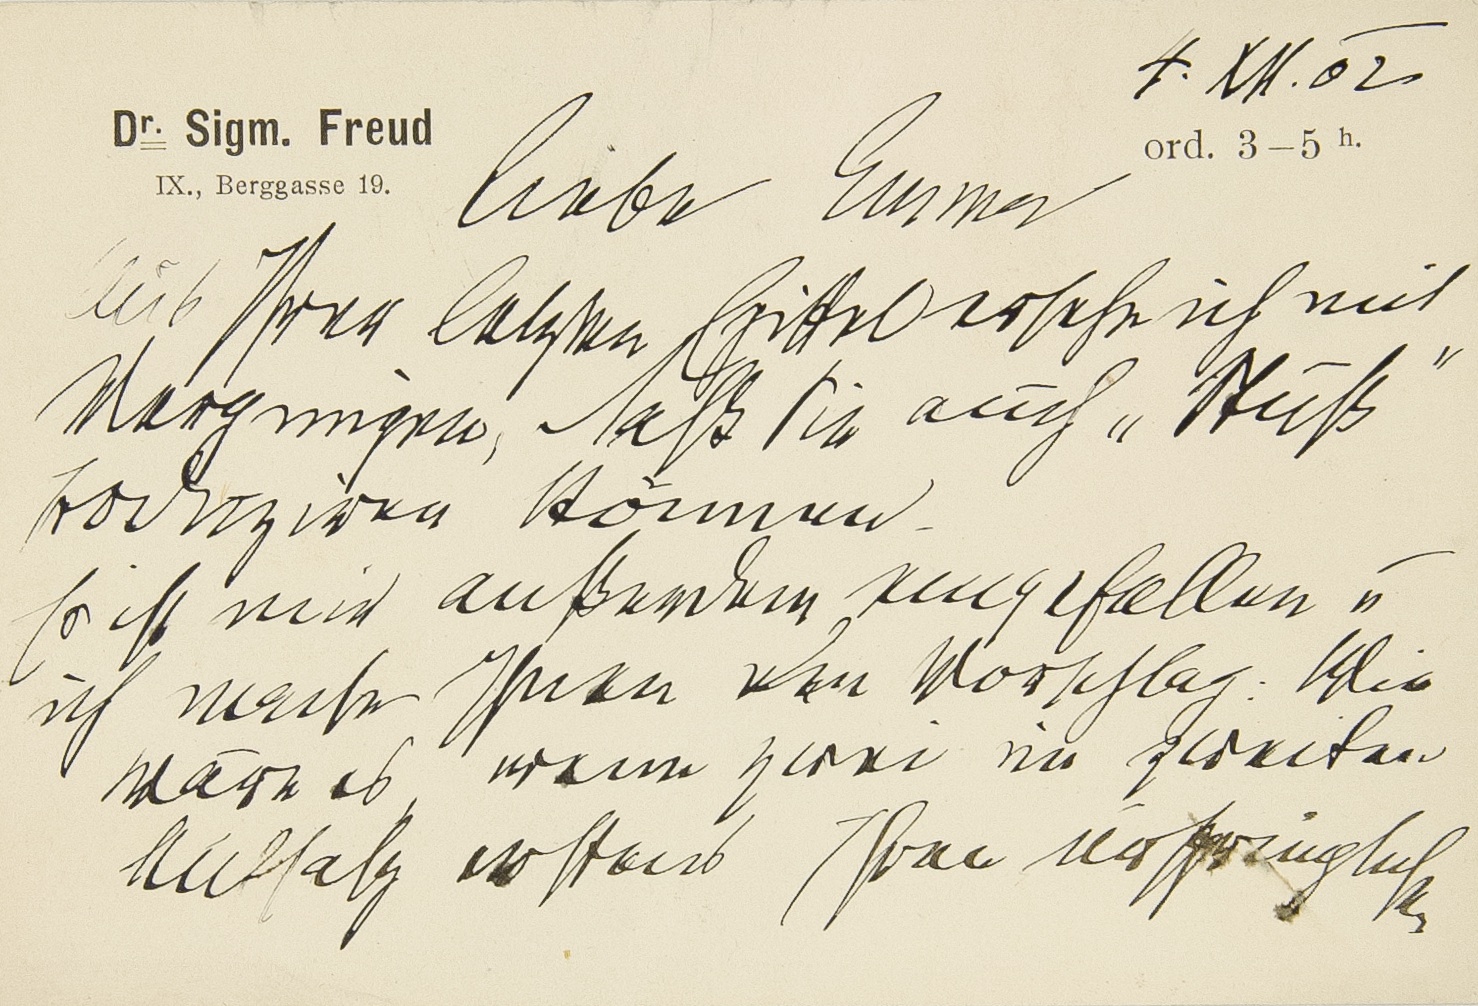 4. XII. 02
Dr. Sigm. Freud
IX., Berggasse 19.
ord. 3–5 h.
Liebe Emma
Aus Ihrem letzten Zettel ersehe ich mit
Vergnügen, daß Sie auch „Stuß“
produziren können.
Es ist mir außerdem eingefallen u
ich mache Ihnen den Vorschlag: Wie
wäre es, wenn Sie im zweiten
Aufsatz erstens Ihre ursprüngliche